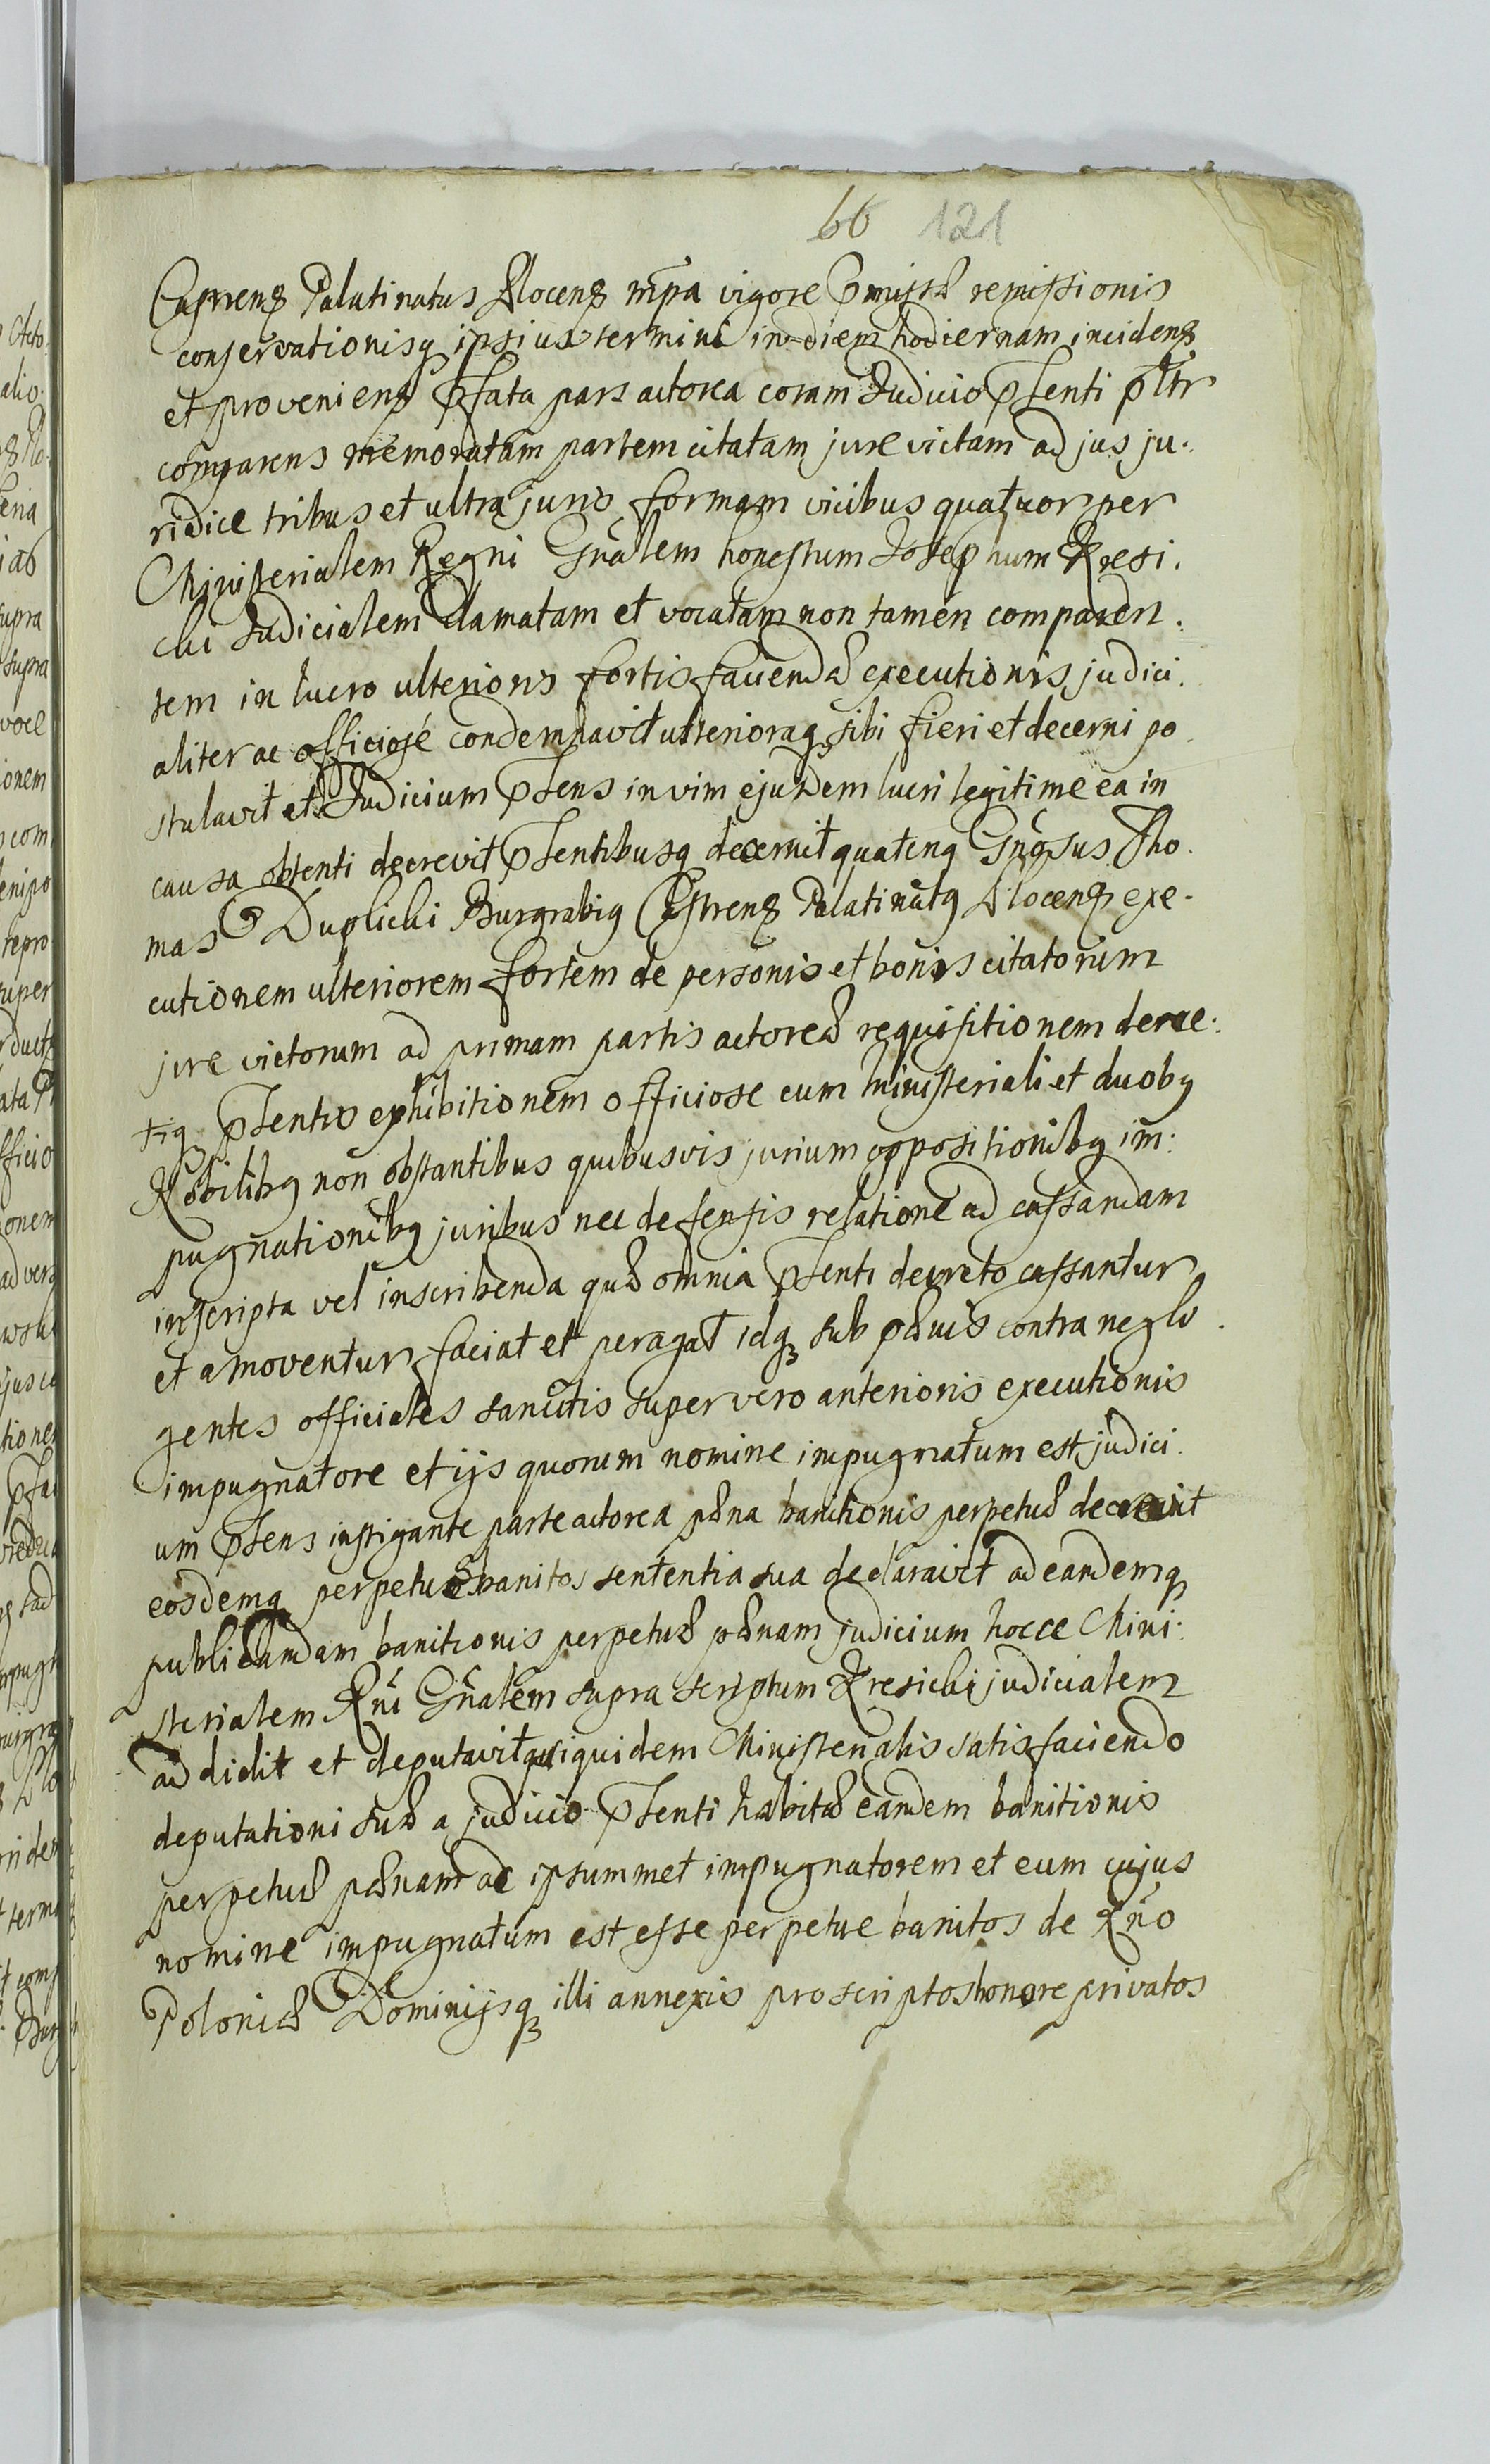 66 121
Castrens Palatinatus Plocens mpa vigore pmissæ remissionis
conservationisq ipsius termini in diem hodiernam incidens
et proveniens pfata pars actorea coram Judicio psenti pltr
comparens memoratam partem citatam jure victam ad jus ju.
ridice tribus et ultra juris formam vicibus quatuor per
Ministerialem Regni Gnalem honestum Josephum Kresi.
cki Judicialem clamatam et vocatam non tamen comparen.
tem in lucro ulterioris fortis faciendæ executionis judici.
aliter ac officiose condemnavit ulterioraq sibi fieri et decerni po
stulavit et Judicium psens in vim ejusdem lucri legitime ea in
causa obtenti decrevit psentibusq decernit quatenq Gnosus Tho.
mas Duplicki Burgrabiq Castrens Palatinatq Plocens exe.
cutionem ulteriorem fortem de personis et bonis citatorum
jure victorum ad primam partis actoreæ requisitionem decre.
tiq psentis exhibitionem officiose cum Ministeriali et duobq
Nobilibq non obstantibus quibusvis jurium oppositionibq im:
pugnationibq juribus nec defensis relatione ad cassandam
inscripta vel inscribenda quæ omnia psenti decreto cassantur
et amoventur faciat et peragat idq sub pænis contra negli.
gentes officiales sancitis super vero anterioris executionis
impugnatore et ijs quorum nomine impugnatum est judici.
um psens instigante parte actorea pæna banitionis perpetuæ decrevit
eosdemq perpetuo banitos sententia sua declaravit ad eandemq
publicandam banitionis perpetuæ pænam judicium hocce Mini:
sterialem Rni Gnalem supra scriptum Kresicki judicialem
addidit et deputavit qui quidem Ministerialis satisfaciendo
deputationi suæ a judicio psenti habitæ eandem banitionis
perpetuæ pænam ac ipsummet impugnatorem et eum cujus
nomine impugnatum est esse perpetue banitos de Rno
Poloniæ Dominijsq illi annexis proscriptos honore privatos